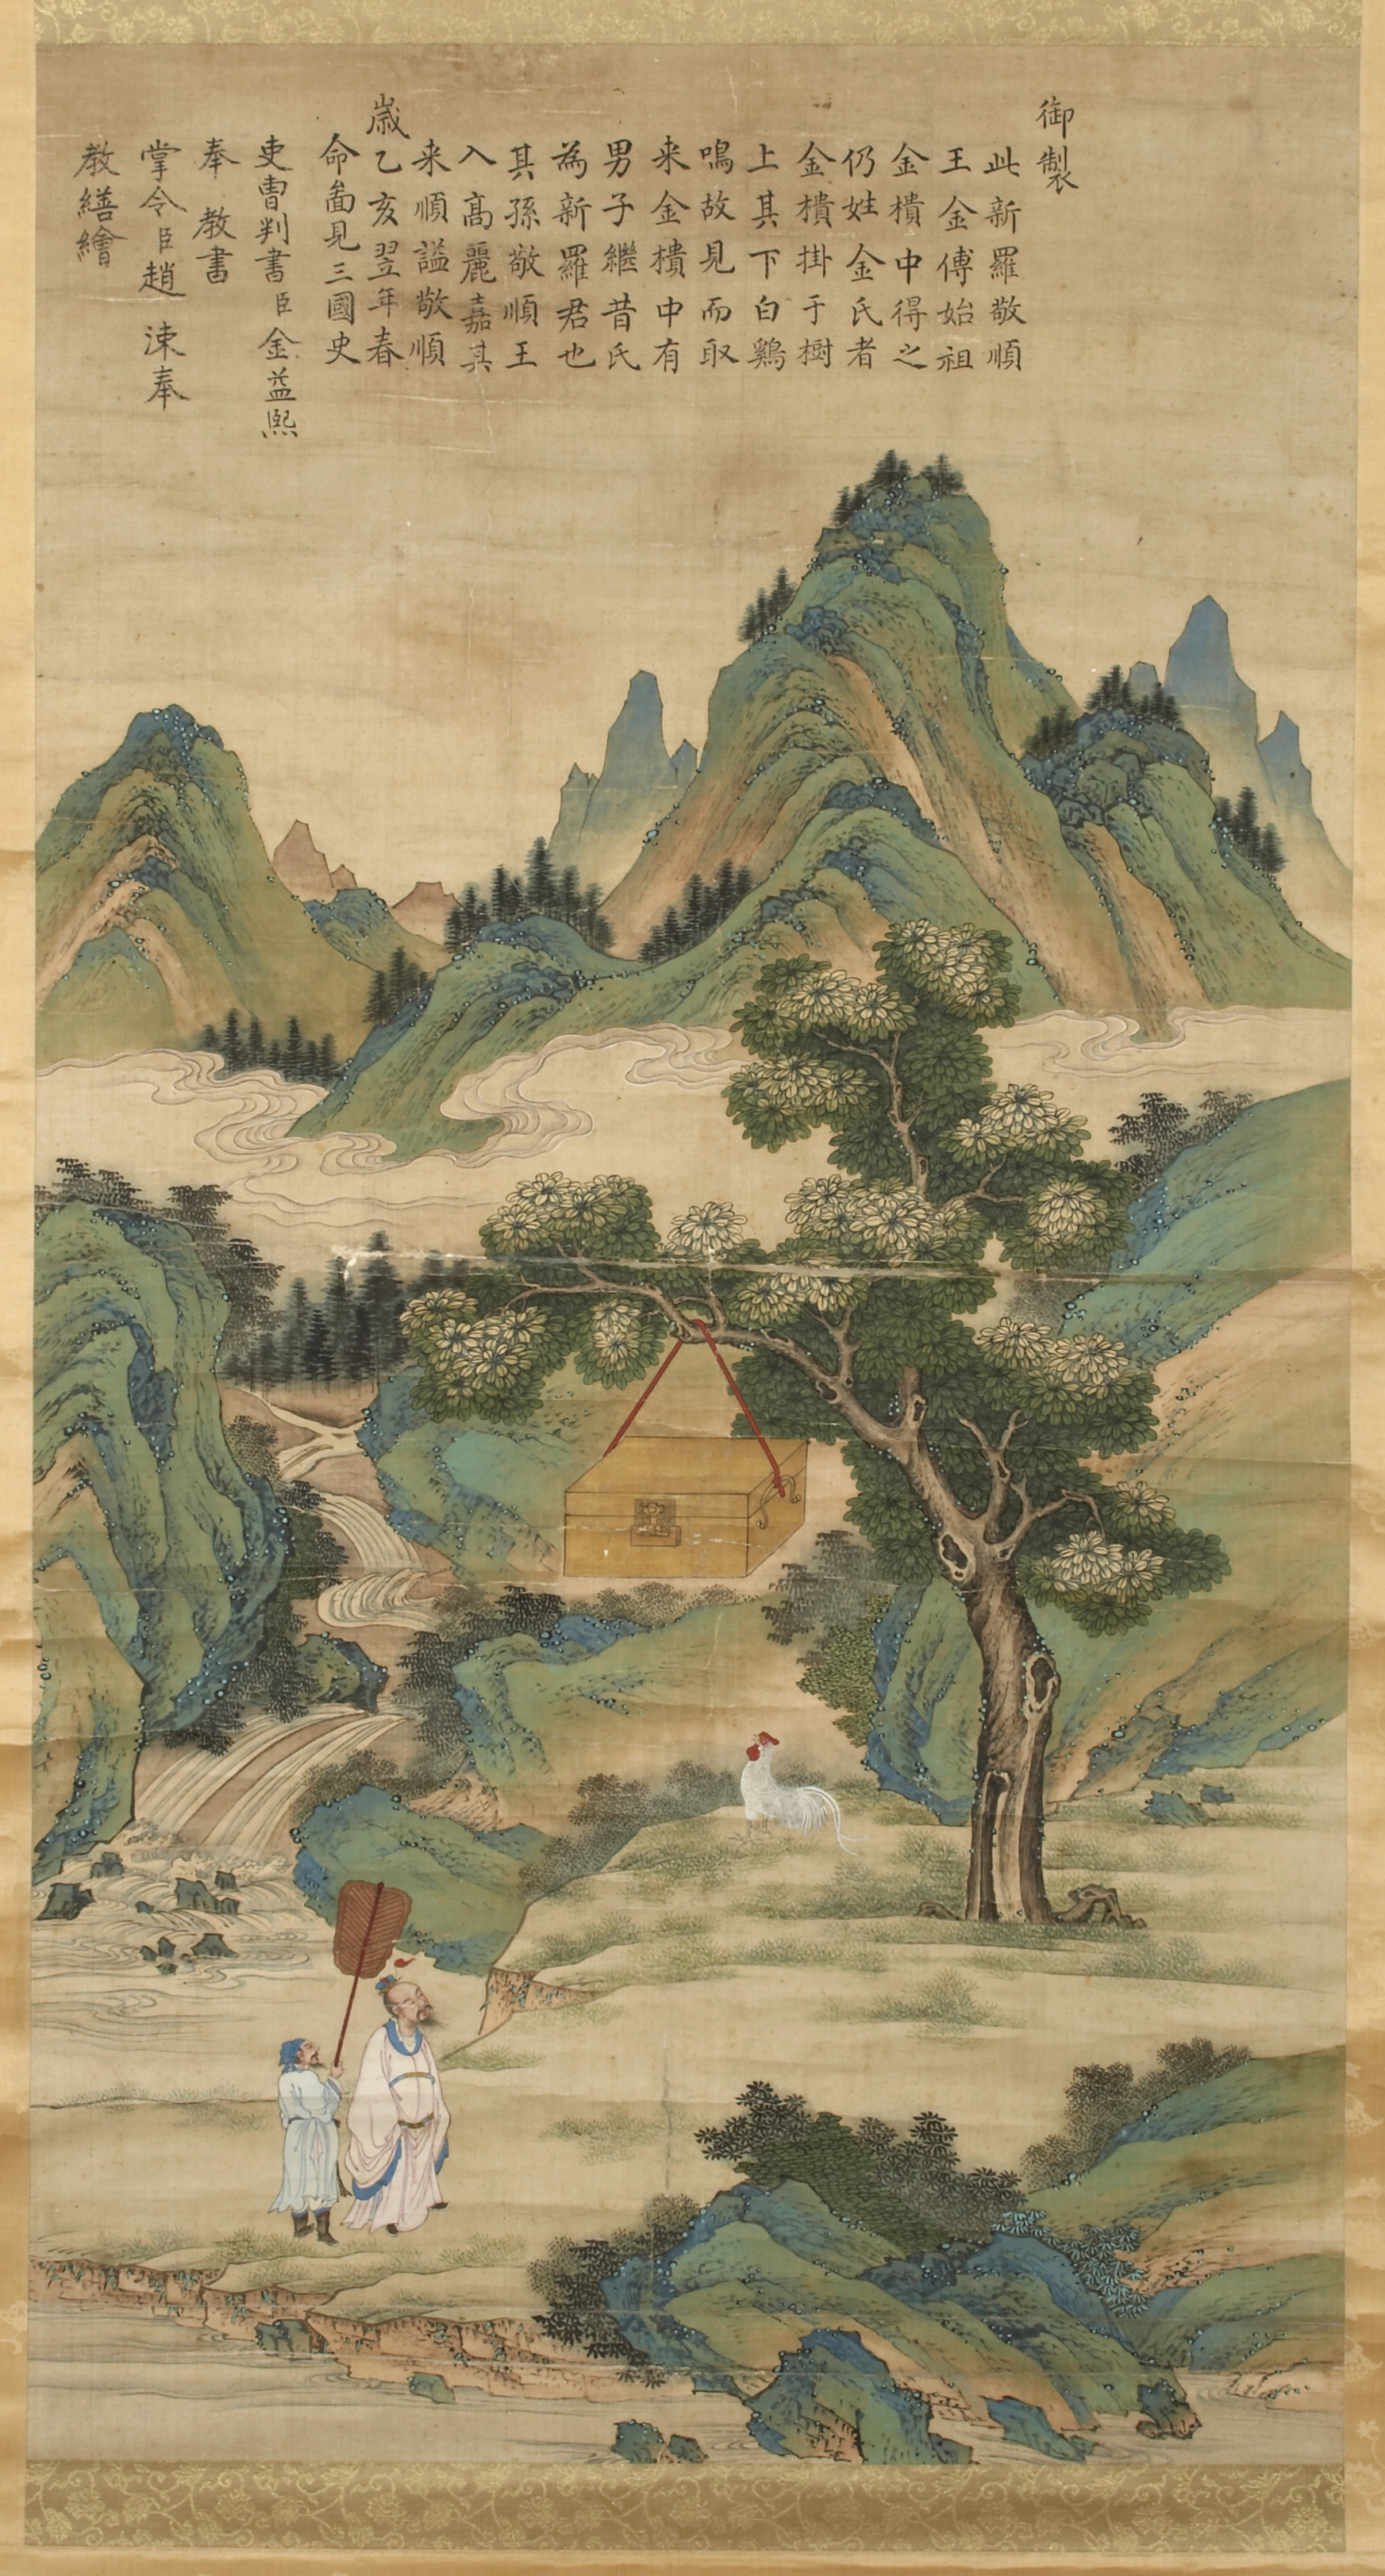 御製
此新羅敬順
王金傅始祖
金樻中得之
仍姓金氏者
金樻掛于樹
上其下白鷄
鳴故見而取
来金樻中有
男子継昔氏
為新羅君也
其孫敬順王
入高麗嘉其
来順謚敬順
歲乙亥翌年春
命啚見三國史
吏曹判書臣金益熙
奉教書
掌令臣趙涑奉
教繕繪